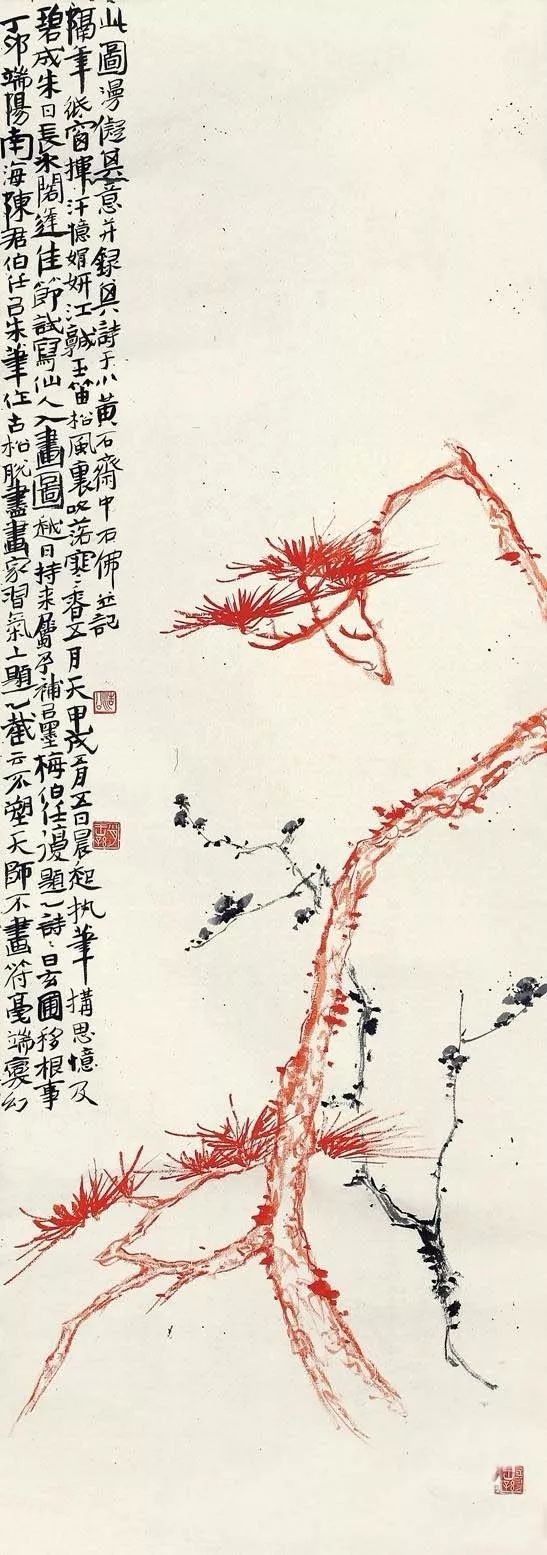 丁卯端陽南海陳君伯任㠯朱筆作古松脫盡畫家習氣上題一截云不塑天師不畫符毫端變幻
碧成朱日長水閣逢佳節試寫仙人入畫圖越日持來屬予補㠯墨梅伯任復題一詩々曰玄圃移根事
隔年紙窗揮汗憶娟妍江城玉笛松風裏吹落寒香五月天甲戌五月五日晨起執筆搆思憶及
此圖漫儗其意并錄其詩于小黃石齋中石佛並記